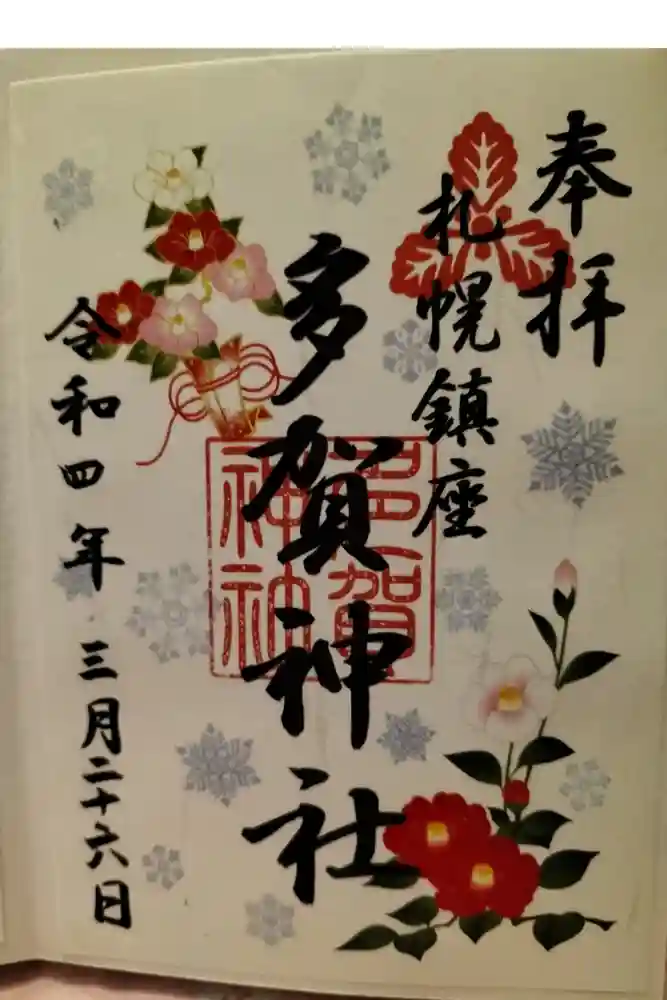 奉拝
札幌鎮座
多賀神社
多賀
神社
令和四年三月二十六日